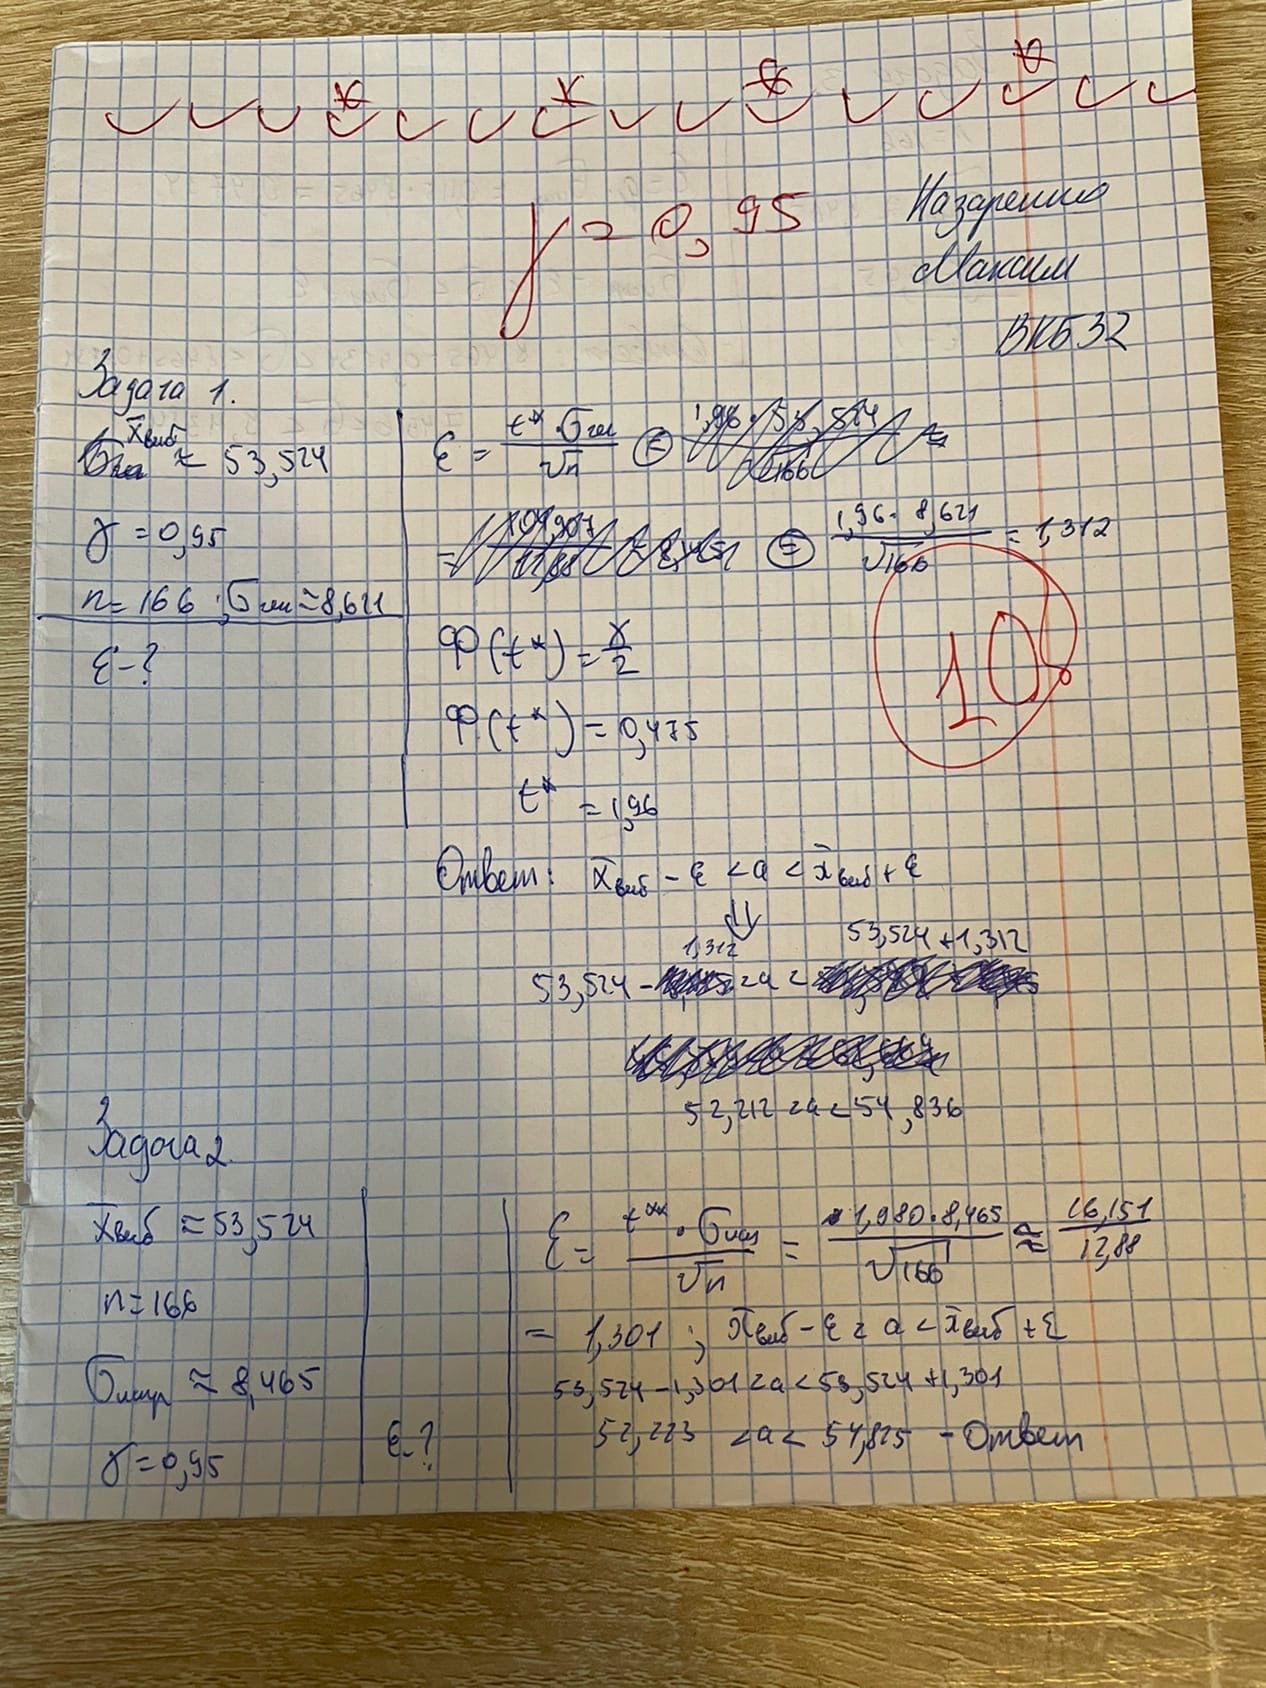 γ = 0,95
Назаренко
Максим
ВКБ32
Задача 1.
x̄выб ≈ 53,524
γ = 0,95
n = 166 ; σген ≈ 8,621
ε - ?
ε = t* · σген / √n = 1,96 · 53,524 / √166 ≈
= 1,96 · 8,621 / √166 = 1,312
Ф(t*) = γ/2
Ф(t*) = 0,475
t* = 1,96
10
Ответ: x̄выб - ε < a < x̄выб + ε
⇓
53,524 - 1,312 < a < 53,524 + 1,312
52,212 < a < 54,836
Задача 2.
x̄выб ≈ 53,524
n = 166
≈ 8,465
γ = 0,95
ε - ?
ε = t** · / √n = 1,980 · 8,465 / √166 ≈ 16,151 / 12,88
= 1,301 ; x̄выб - ε < a < x̄выб + ε
53,524 - 1,301 < a < 53,524 + 1,301
52,223 < a < 54,825 - Ответ